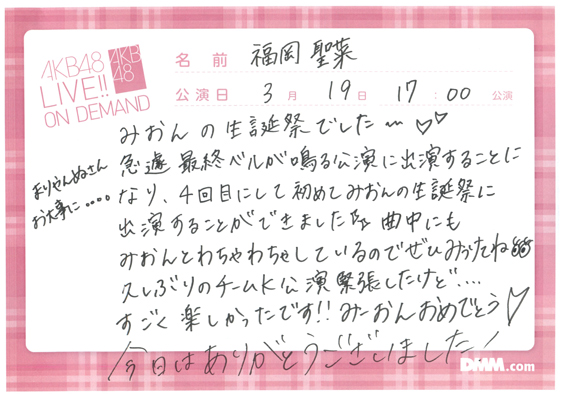 AKB48
LIVE!!
ON DEMAND
AKB
48
名前 福岡 聖菜
公演日 3月 19日 17:00 公演
みおんの生誕祭でした〜♡♡
急遽 最終ベルが鳴る公演に出演することに
なり、4回目にして初めてみおんの生誕祭に
出演することができました 曲中にも
みおんとわちゃわちゃしているのでぜひみてね
久しぶりのチームK公演緊張したけど....
すごく楽しかったです!!みーおんおめでとう♡
今日はありがとうございました!
まりやんぬさん
お大事に....
DMM.com